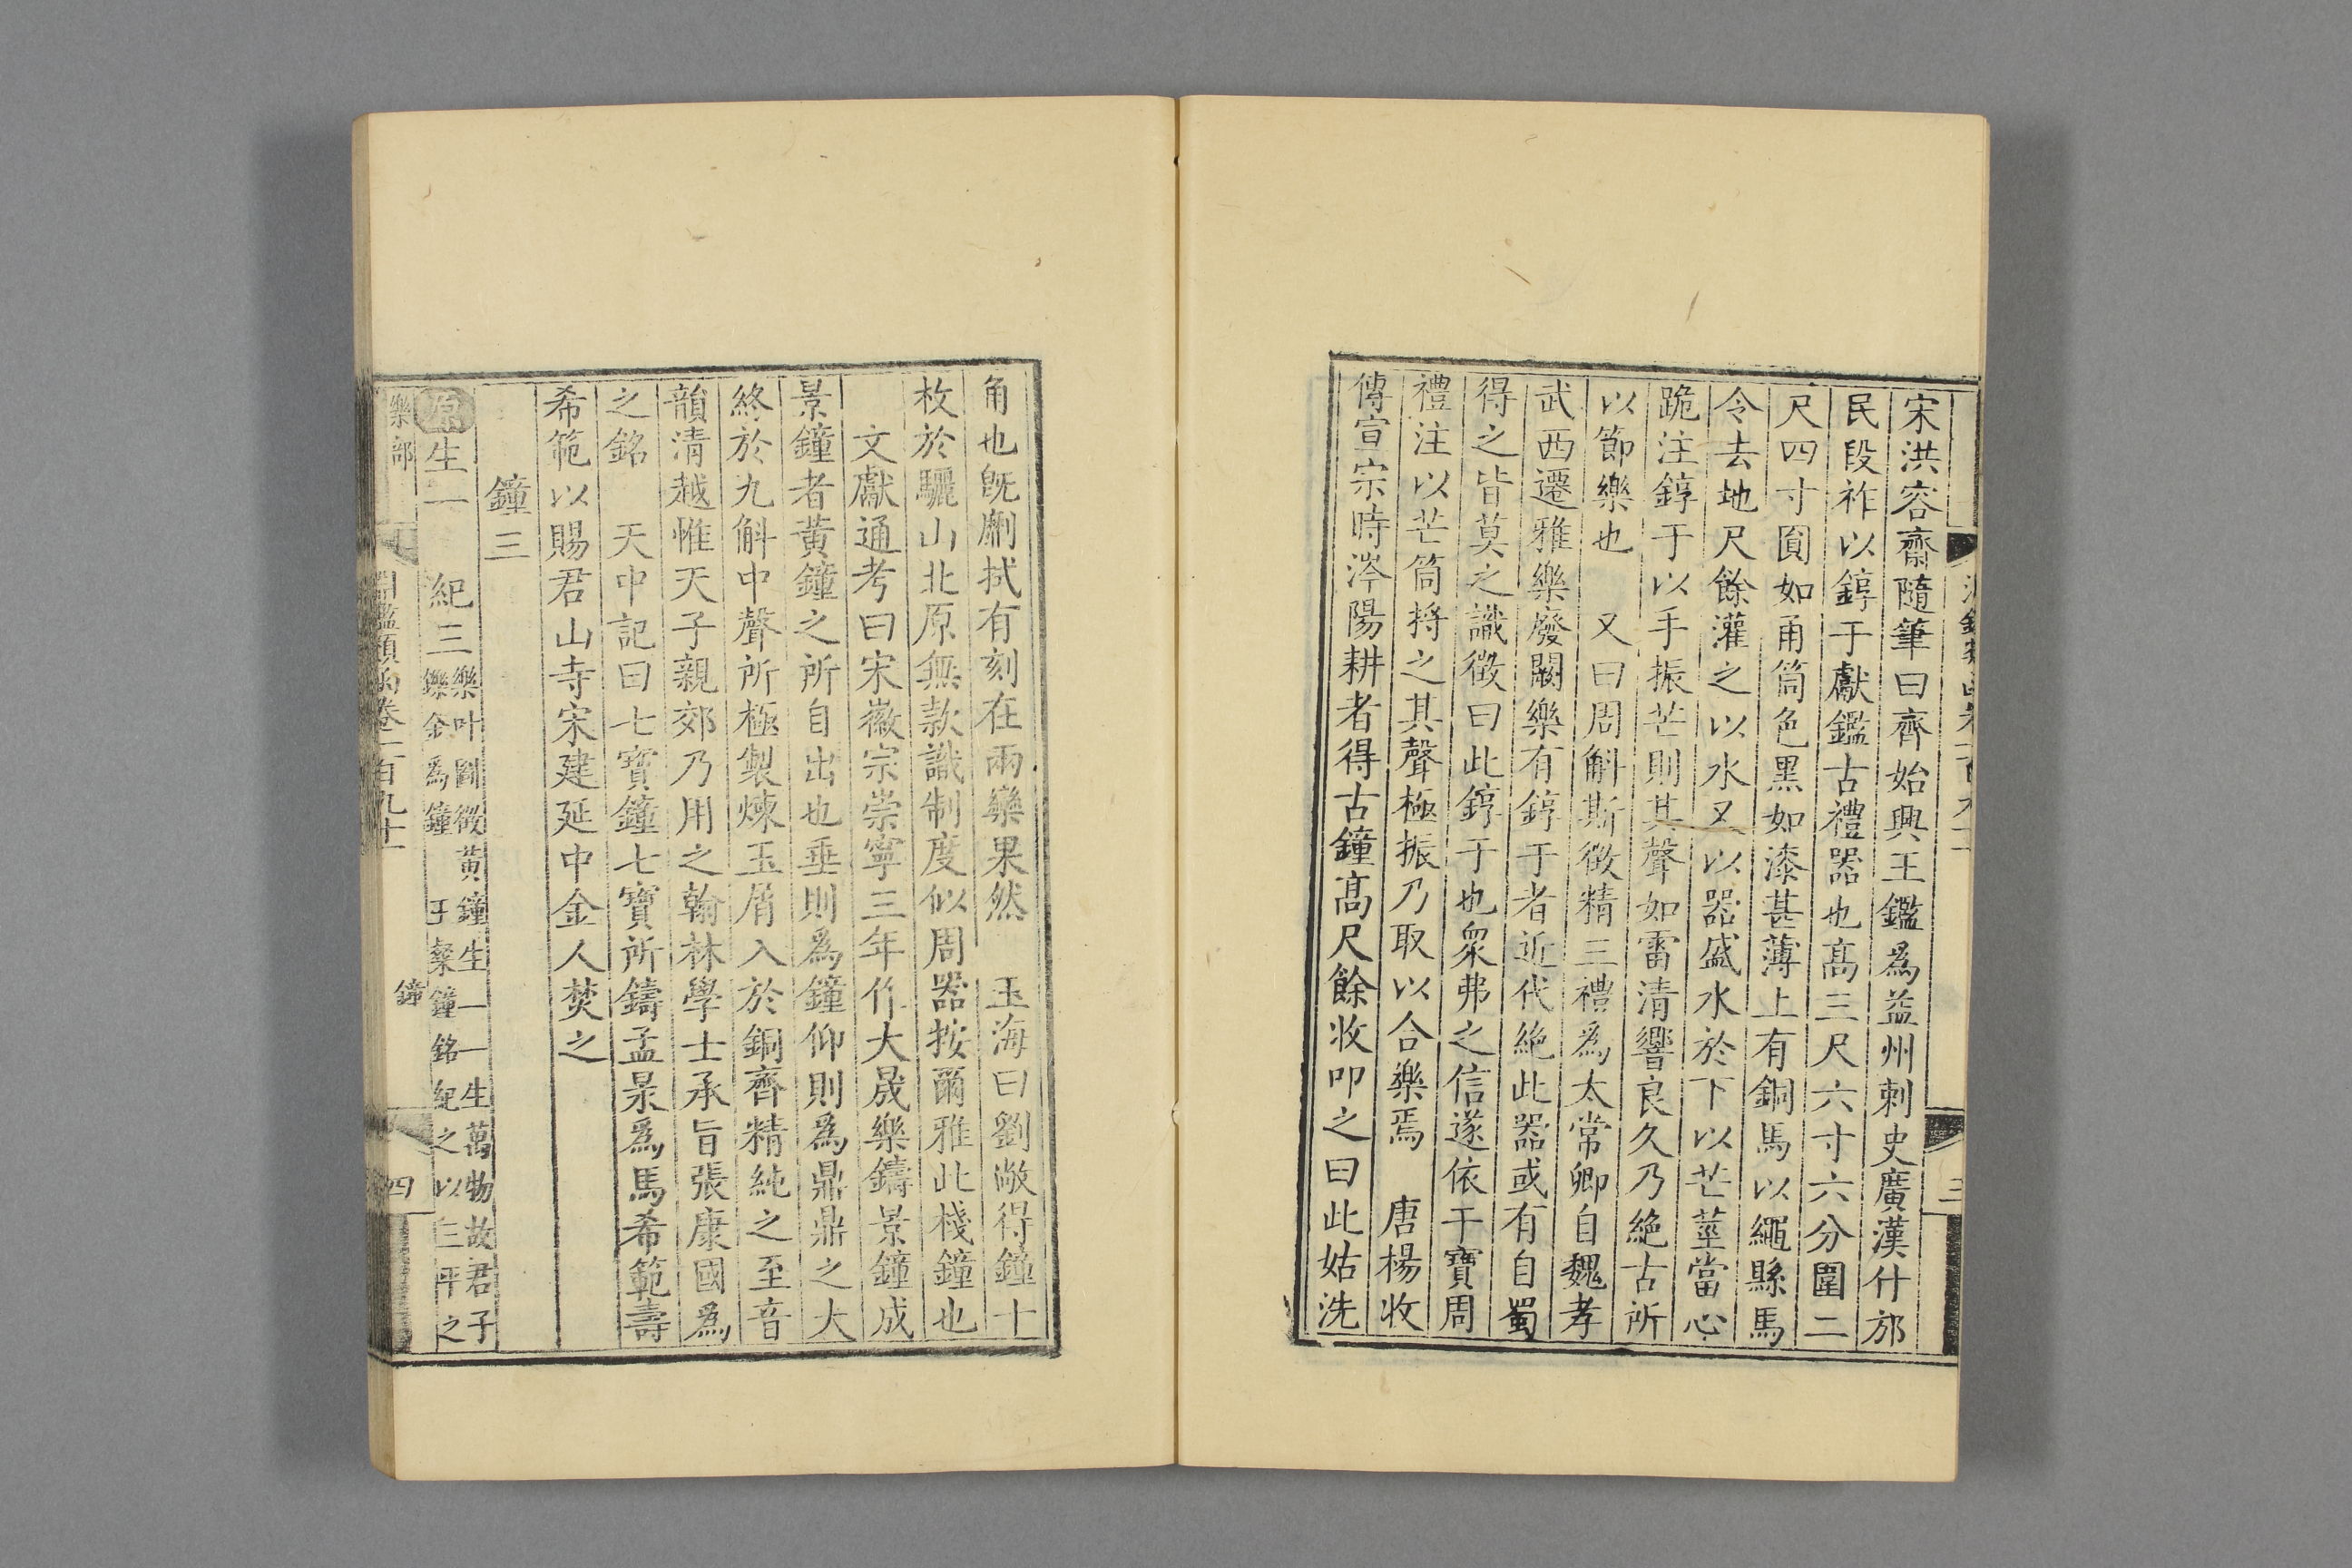 宋洪容齋隨筆曰齊始興王鑑爲益州刺史廣漢什邡
民段祚以錞于獻鑑古禮器也高三尺六寸六分圍二
尺四寸圓如甬筒色黑如漆甚薄上有銅馬以繩縣馬
令去地尺餘灌之以水又以器盛水於下以芒莖當心
跪注錞于以手振芒則其聲如雷清響良久乃絶古所
以節樂也　又曰周斛斯徵精三禮爲太常卿自魏孝
武西遷雅樂廢闕樂有錞于者近代絶此器或有自蜀
得之皆莫之識徵曰此錞于也衆弗之信遂依干寶周
禮注以芒筒捋之其聲極振乃取以合樂焉　唐楊收
傳宣宗時涔陽耕者得古鐘高尺餘收叩之曰此姑洗
三
角也旣劘拭有刻在兩欒果然　玉海曰劉敞得鐘十
枚於驪山北原無款識制度似周器按爾雅此棧鐘也
文獻通考曰宋徽宗崇寧三年作大晟樂鑄景鐘成
景鐘者黃鐘之所自出也垂則爲鐘仰則爲鼎鼎之大
終於九斛中聲所極製煉玉屑入於銅齊精純之至音
韻清越惟天子親郊乃用之翰林學士承旨張康國爲
之銘　天中記曰七寶鐘七寶所鑄孟杲爲馬希範壽
希範以賜君山寺宋建延中金人焚之
鐘三
原生一　紀三樂叶圖徵黃鐘生一一生萬物故君子
鑠金爲鐘　王粲鐘銘紀之以三平之
樂部　淵鑑類函卷一百九十　鐘　四